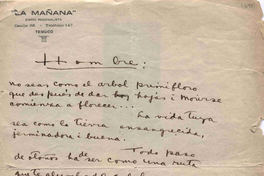 "LA MAÑANA"
DIARIO REGIONALISTA
TEMUCO
Hombre:
no seas como el arbol primifloro
que despues de dar hojas i mourse
comienza a florecer... ... La vida tuya
sea como la tierra ensangrecida,
jerminadora i buena.
Todo paso
de otoños ha de ser como una ruta